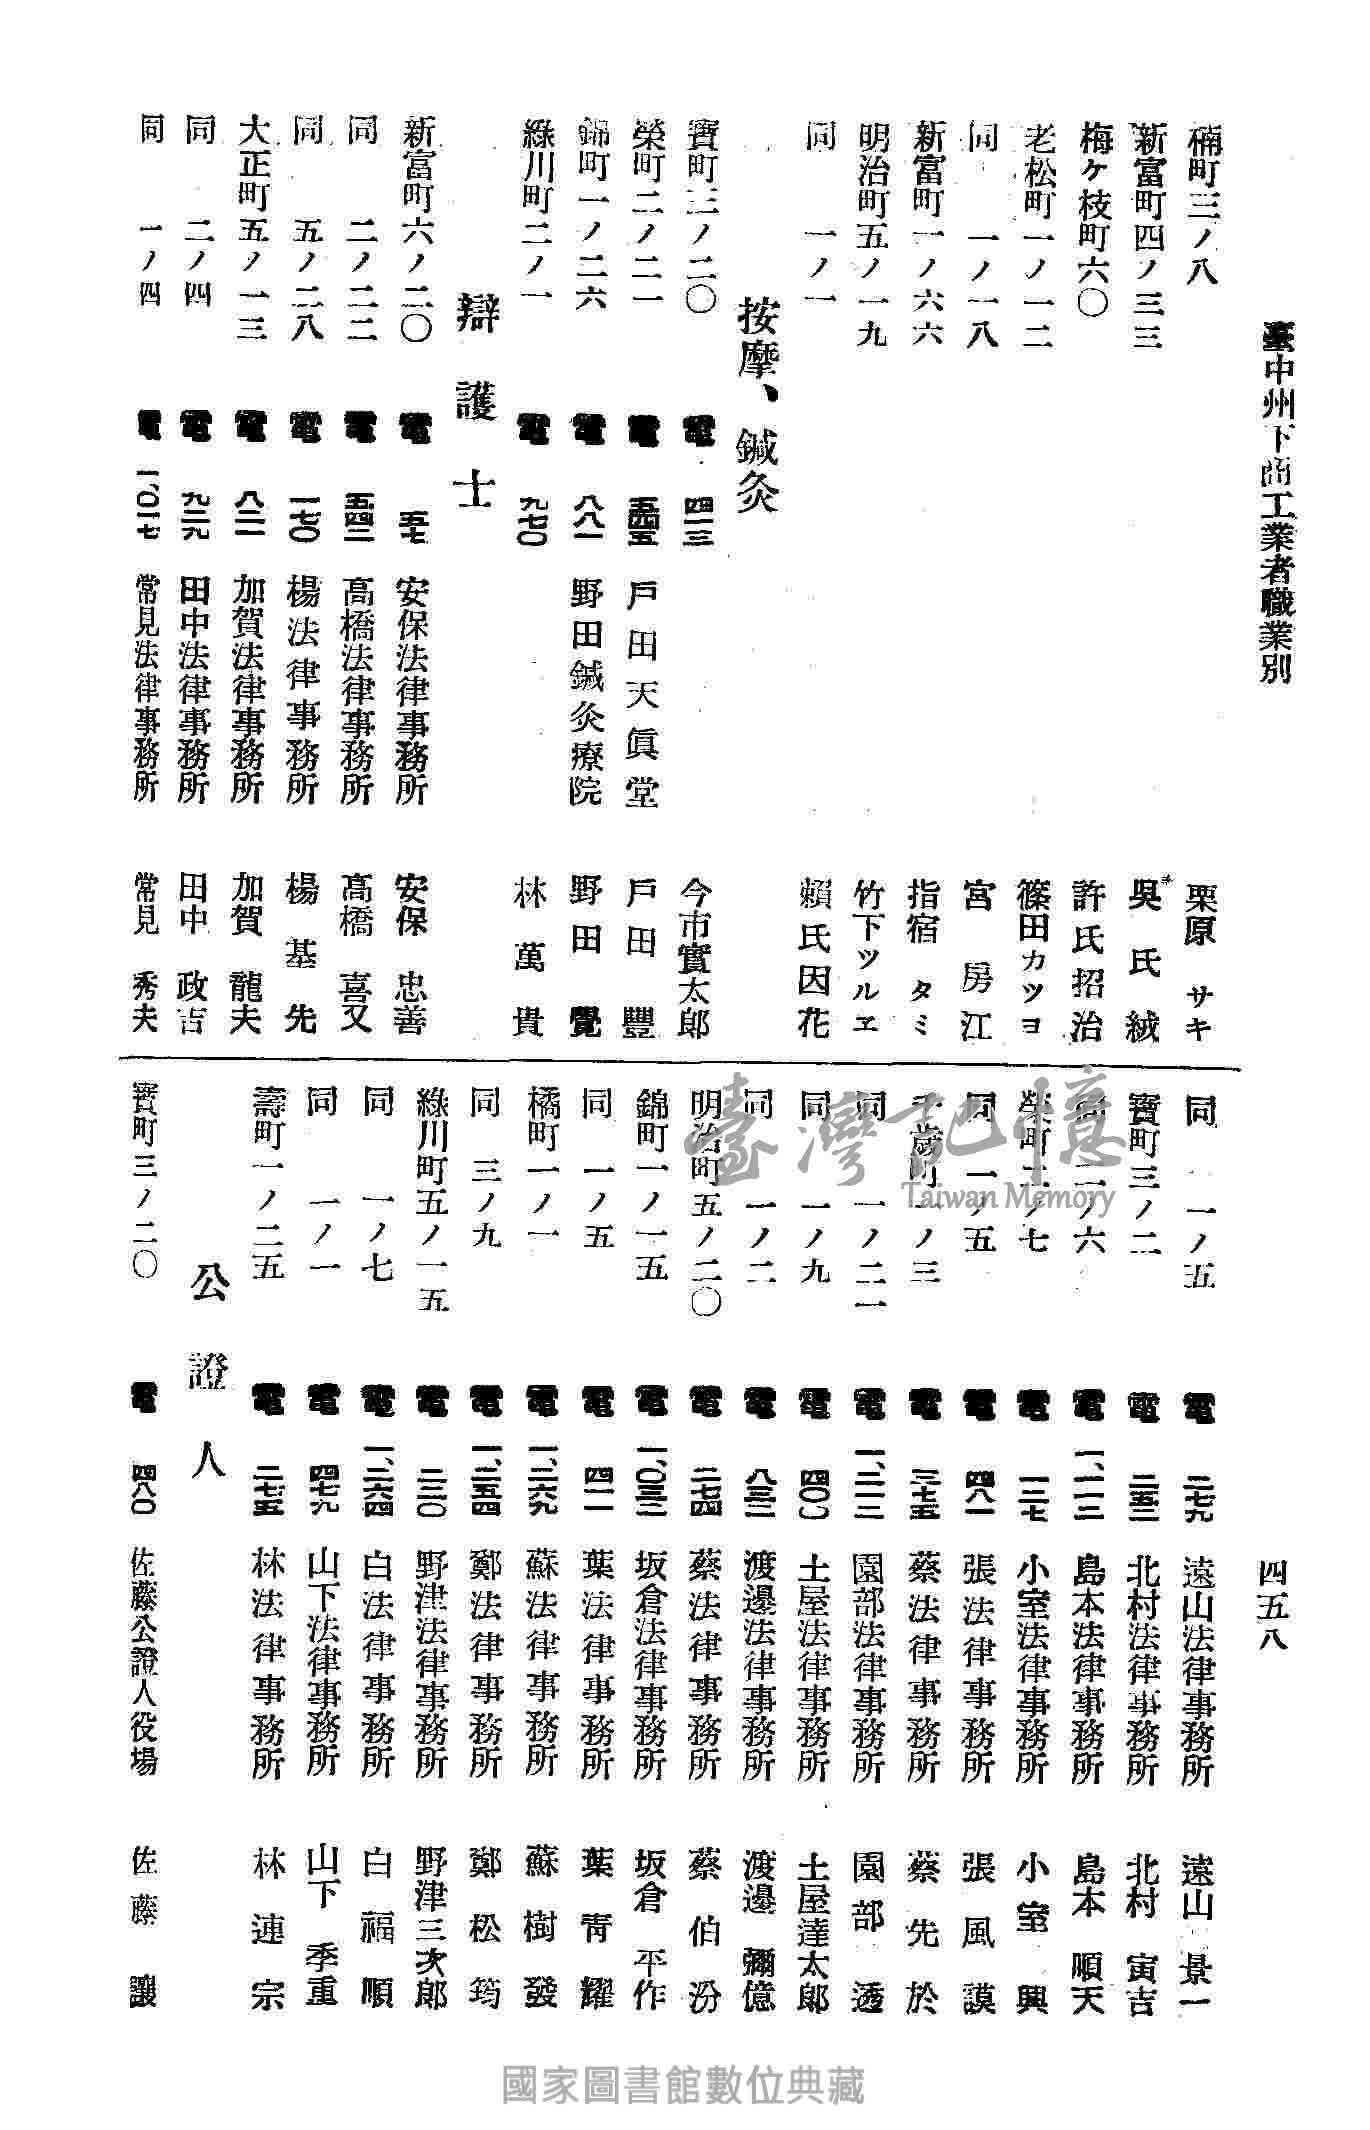 臺中州下商工業者職業別
四五八
楠町三ノ八 栗原 サキ
新富町四ノ三三 吳氏絨
梅ケ枝町六〇 許氏招治
老松町一ノ一二 篠田カツヨ
同 一ノ一八 宮房江
新富町一ノ六六 指宿タミ
明治町五ノ一九 竹下ツルヱ
同 一ノ一 賴氏因花
按摩、鍼灸
寶町三ノ二〇 電 四一三 今市實太郎
榮町二ノ二一 電 五四五 戶田天眞堂 戶田豐
錦町一ノ二六 電 八八一 野田鍼灸療院 野田覺
綠川町二ノ一 電 九七〇 林萬貴
辯護士
新富町六ノ二〇 電 五七 安保法律事務所 安保忠善
同 二ノ二二 電 五四二 高橋法律事務所 高橋喜又
同 五ノ二八 電 一七〇 楊法律事務所 楊基先
大正町五ノ一三 電 八二一 加賀法律事務所 加賀龍夫
同 二ノ四 電 九二九 田中法律事務所 田中政吉
同 一ノ四 電 一、〇一七 常見法律事務所 常見秀夫
同 一ノ五 電 二七九 遠山法律事務所 遠山景一
寶町三ノ二 電 二五三 北村法律事務所 北村寅吉
同 二ノ六 電 一、一一三 島本法律事務所 島本順天
榮町二ノ七 電 一三七 小室法律事務所 小室興
同 一ノ五 電 四八一 張法律事務所 張風謨
千歲町一ノ三 電 三七五 蔡法律事務所 蔡先於
同 一ノ二一 電 一、二一三 園部法律事務所 園部透
同 一ノ九 電 四〇〇 土屋法律事務所 土屋達太郎
同 一ノ二 電 八三二 渡邊法律事務所 渡邊彌億
明治町五ノ二〇 電 二七四 蔡法律事務所 蔡伯汾
錦町一ノ一五 電 一、〇三二 坂倉法律事務所 坂倉平作
同 一ノ五 電 四一一 葉法律事務所 葉靑耀
橘町一ノ一 電 一、二六九 蘇法律事務所 蘇樹發
同 三ノ九 電 一、二五四 鄭法律事務所 鄭松筠
綠川町五ノ一五 電 三二〇 野津法律事務所 野津三次郎
同 一ノ七 電 一、二六四 白法律事務所 白福順
同 一ノ一 電 四七九 山下法律事務所 山下季重
壽町一ノ二五 電 二七五 林法律事務所 林連宗
公證人
寶町三ノ二〇 電 四八〇 佐藤公證人役場 佐藤讓
臺灣記憶
Taiwan Memory
國家圖書館數位典藏